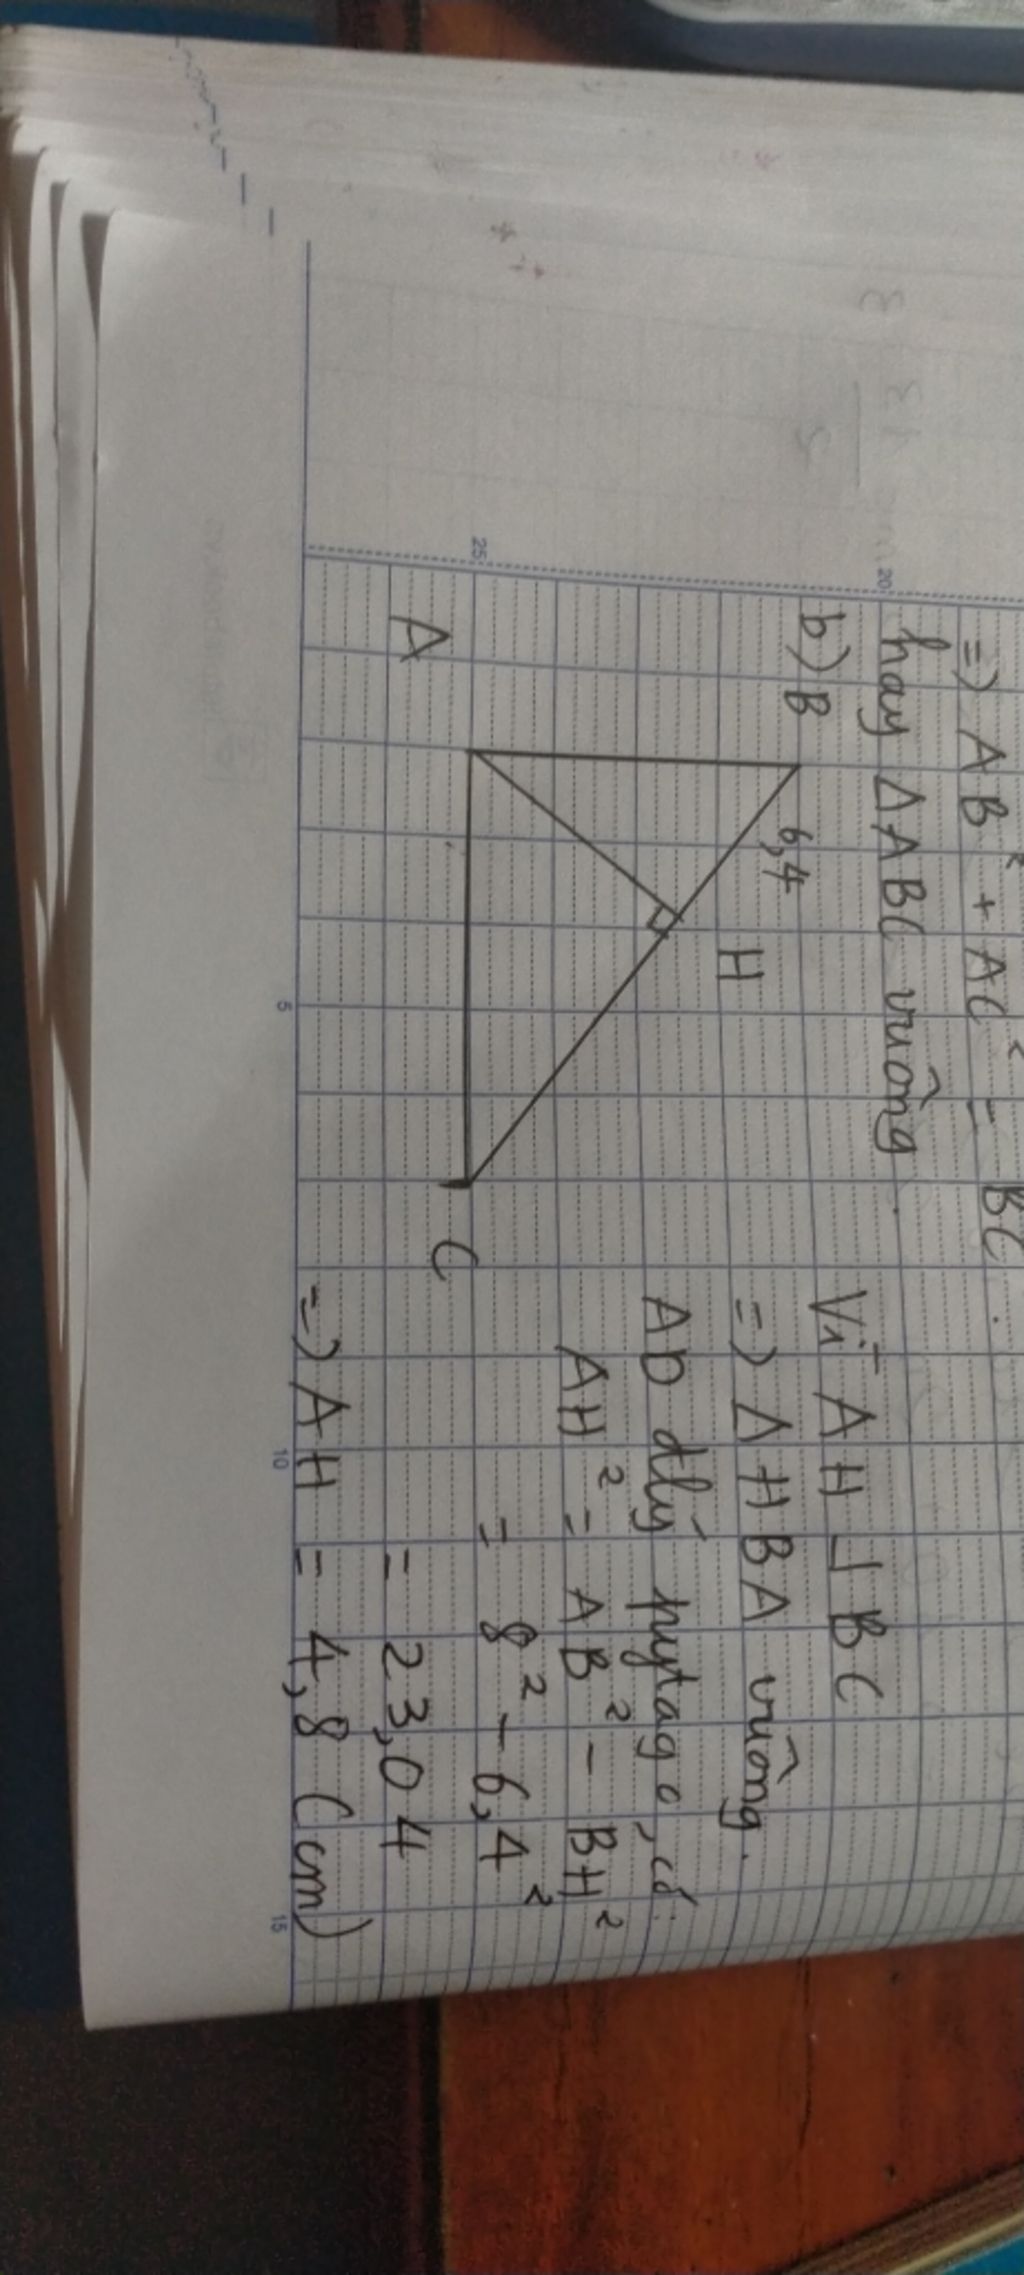 =) AB² + AC² = BC
hay ΔABC vuông.
b) B
6,4
H
A
C
Vì AH ⊥ BC
=) ΔHBA vuông.
AD đlý pytago, có:
AH² = AB² - BH²
= 8² - 6,4²
= 23,04
=) AH = 4,8 (cm)
20
25
5
10
15